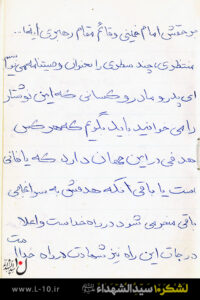 بر حقش امام خمینی و قائم مقام رهبری آیت ا...
منتظری، چند سطری را بعنوان وصیتنامه می نویسم
ای پدر و مادر و کسانی که این نوشتار
را می خوانید باید بگویم که هر کس
هدفی در این جهان دارد که یا فانی
است یا باقی آنکه هدفش به سوی الهی
باقی محسوب می شود در راه خداست و اعلا
درجات این راه نیز شهادت در راه خدا
ست
لشکر۱۰ سیدالشهداء
www.L-10.ir